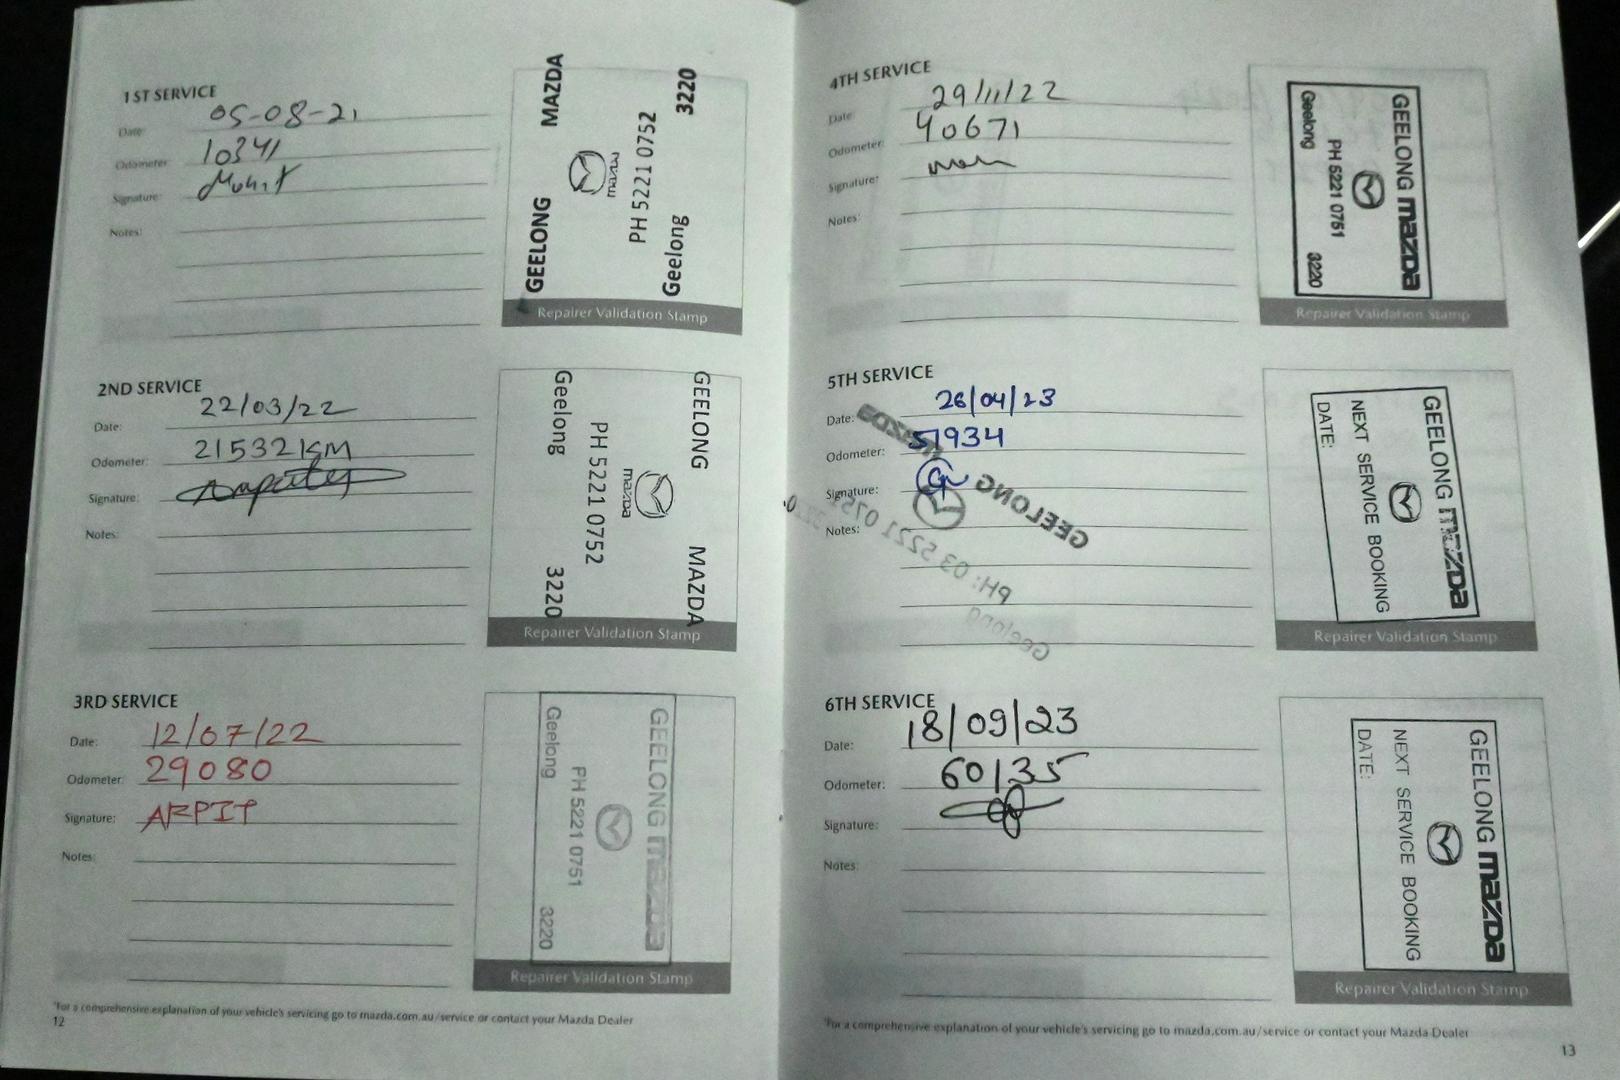 1ST SERVICE
Date: 05-08-21
Odometer: 10341
Signature: Mohit
Notes:
GEELONG MAZDA
mazda
PH 5221 0752
Geelong 3220
Repairer Validation Stamp
2ND SERVICE
Date: 22/03/22
Odometer: 21532KM
Signature:
Notes:
GEELONG MAZDA
mazda
PH 5221 0752
Geelong 3220
Repairer Validation Stamp
3RD SERVICE
Date: 12/07/22
Odometer: 29080
Signature: ARPIT
Notes:
GEELONG mazda
PH 5221 0751
Geelong 3220
Repairer Validation Stamp
*For a comprehensive explanation of your vehicle's servicing go to mazda.com.au/service or contact your Mazda Dealer
12
4TH SERVICE
Date: 29/11/22
Odometer: 40671
Signature:
Notes:
GEELONG mazda
PH 5221 0751
Geelong 3220
Repairer Validation Stamp
5TH SERVICE
Date: 26/04/23
Odometer: 51934
Signature:
Notes:
GEELONG mazda
PH: 03 5221 0751
Geelong
GEELONG mazda
NEXT SERVICE BOOKING
DATE:
Repairer Validation Stamp
6TH SERVICE
Date: 18/09/23
Odometer: 60135
Signature:
Notes:
GEELONG mazda
NEXT SERVICE BOOKING
DATE:
Repairer Validation Stamp
*For a comprehensive explanation of your vehicle's servicing go to mazda.com.au/service or contact your Mazda Dealer
13